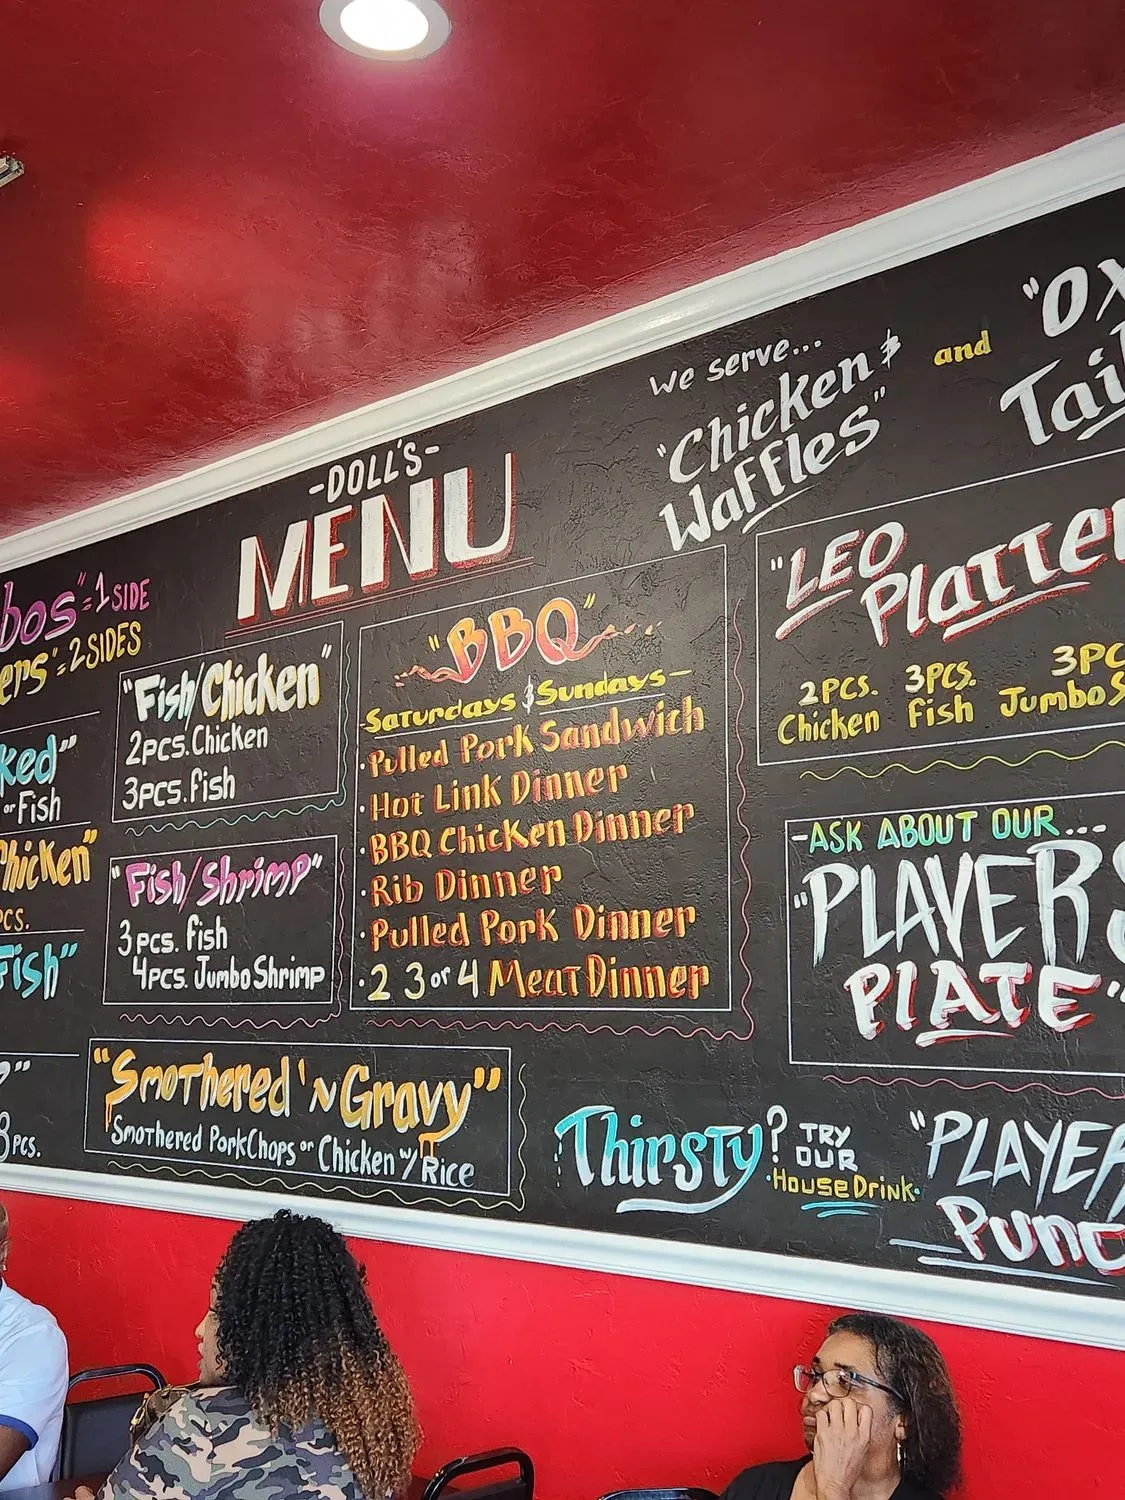 -DOLL'S-
MENU
we serve...
"Chicken &
Waffles"
and
"OX
Tail
bos"=1 SIDE
ers"=2 SIDES
ked"
or Fish
Chicken"
PCS.
Fish"
8 PCS.
"Fish/Chicken"
2pcs. Chicken
3pcs. fish
"Fish/Shrimp"
3 pcs. fish
4pcs. Jumbo Shrimp
"Smothered 'N Gravy"
Smothered PorkChops or Chicken w/ Rice
"BBQ"
Saturdays & Sundays
·Pulled Pork Sandwich
·Hot Link Dinner
·BBQ Chicken Dinner
·Rib Dinner
·Pulled Pork Dinner
·2 3 or 4 Meat Dinner
"LEO
Platter
2PCS.
Chicken
3PCS.
fish
3PC
Jumbo S
-ASK ABOUT OUR...
"PLAYERS
PLATE"
Thirsty?
TRY
OUR
·House Drink·
"PLAYER
Punc